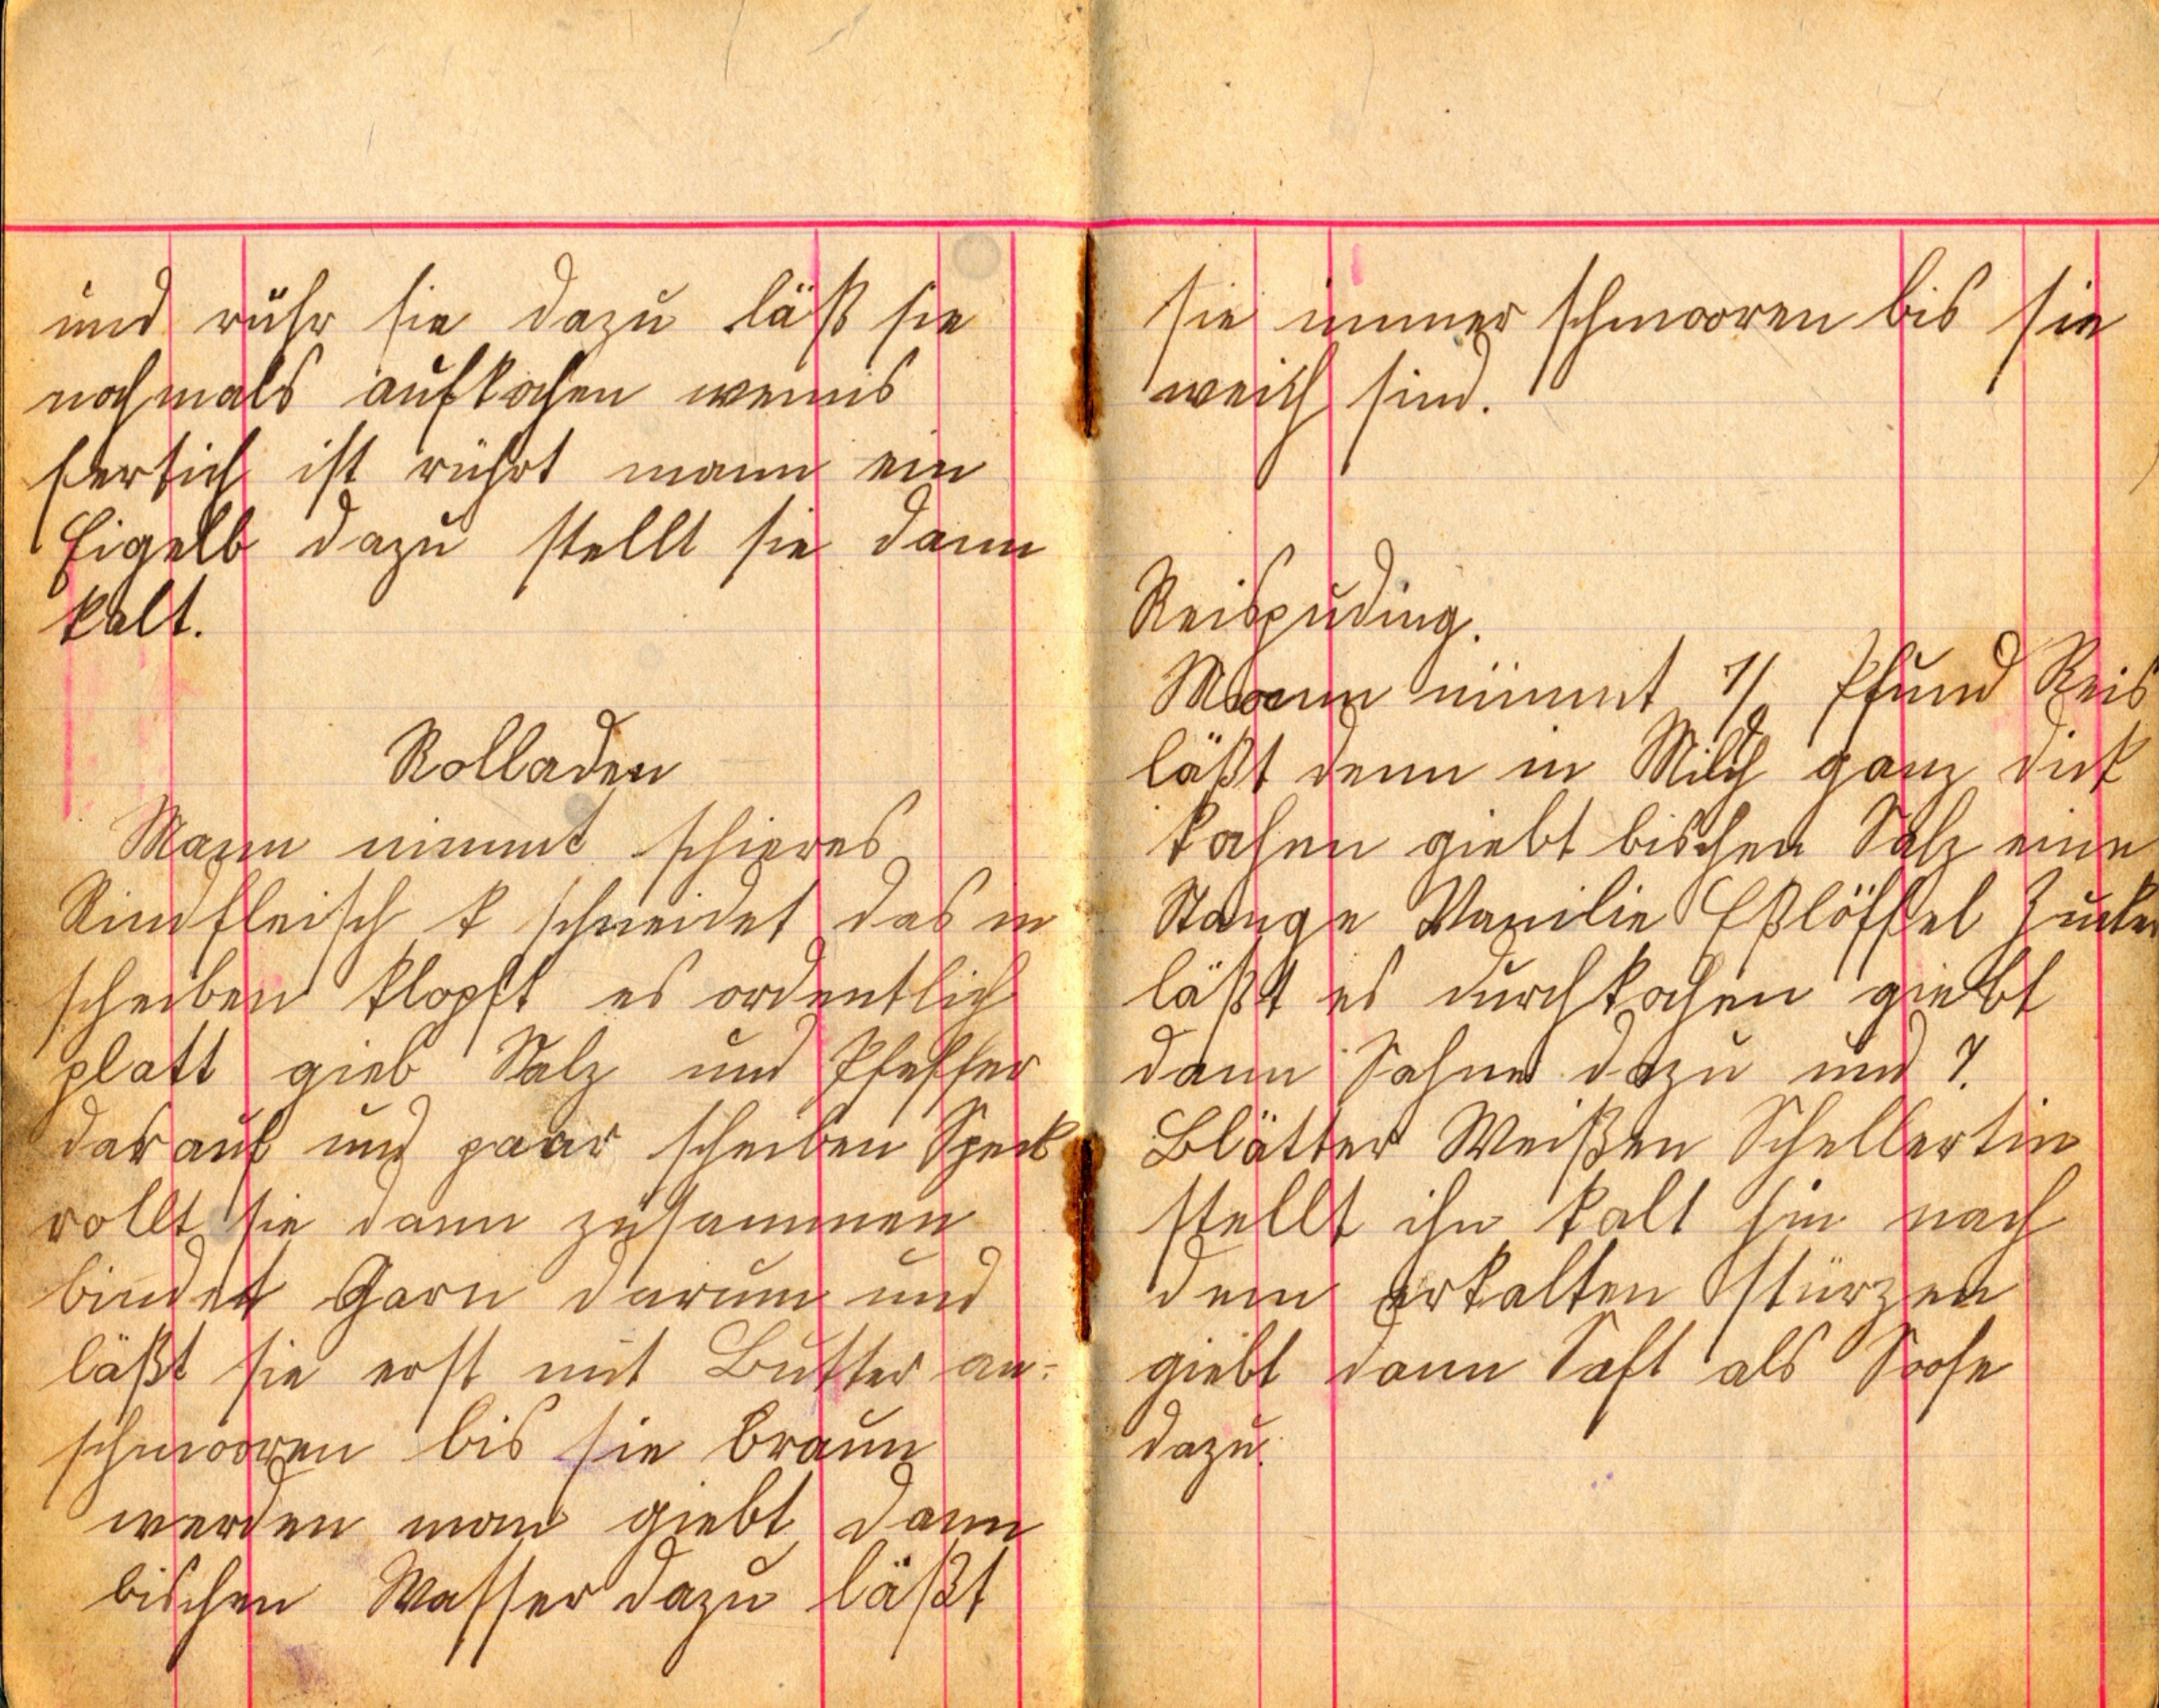 und rühr sie dazu läß sie
nochmals aufkochen wenns
fertich ist rührt mann ein
Eigelb dazu stellt sie dann
kalt.
Rolladen
Mann nimmt schieres
Rindfleisch & schneidet das in
scheiben klopft es ordentlich
platt gieb Salz und Pfeffer
darauf und paar scheiben Speck
rollt sie dann zusammen
bindet Garn darum und
läßt sie erst mit Butter an-
schmooren bis sie braun
werden man giebt dann
bischen Wasser dazu läßt
sie immer schmooren bis sie
weich sind.
Reispuding.
Mann nimmt Pfund Reis
läßt denn in Milch ganz dick
kochen giebt bischen Salz eine
Stange Vanilie Eßlöffel Zucker
läßt es durchkochen giebt
dann Sahne dazu und 7.
Blätter Weißen Schellertin
stellt ihn kalt hin nach
dem erkalten stürzen
giebt dann Saft als Soose
dazu.